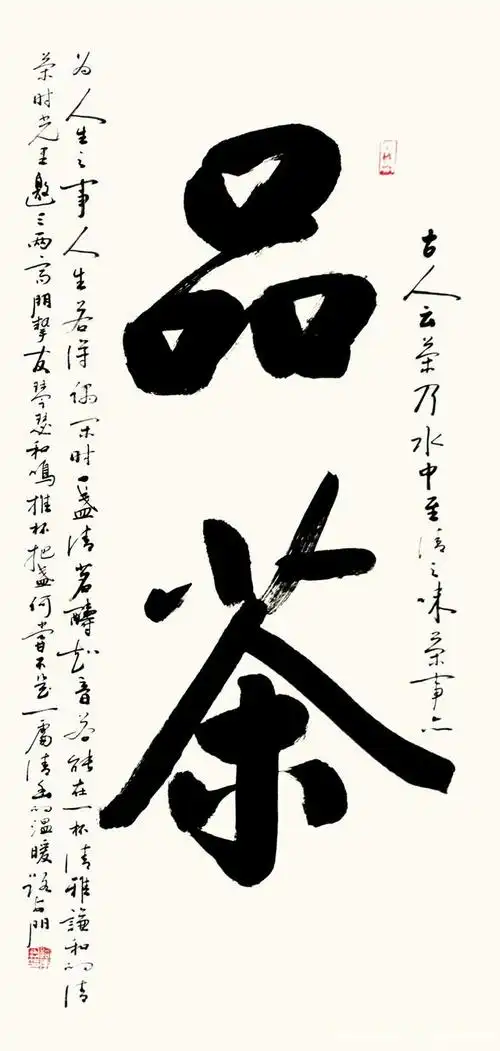 品茶
古人云茶乃水中至清之味茶事亦
为人生之事人生若得偶闲时一盏清茗酬知音若能在一杯清雅谦和的清
茶时光里邀三两高朋挚友琴瑟和鸣推杯把盏何尝不是一处清幽的温暖